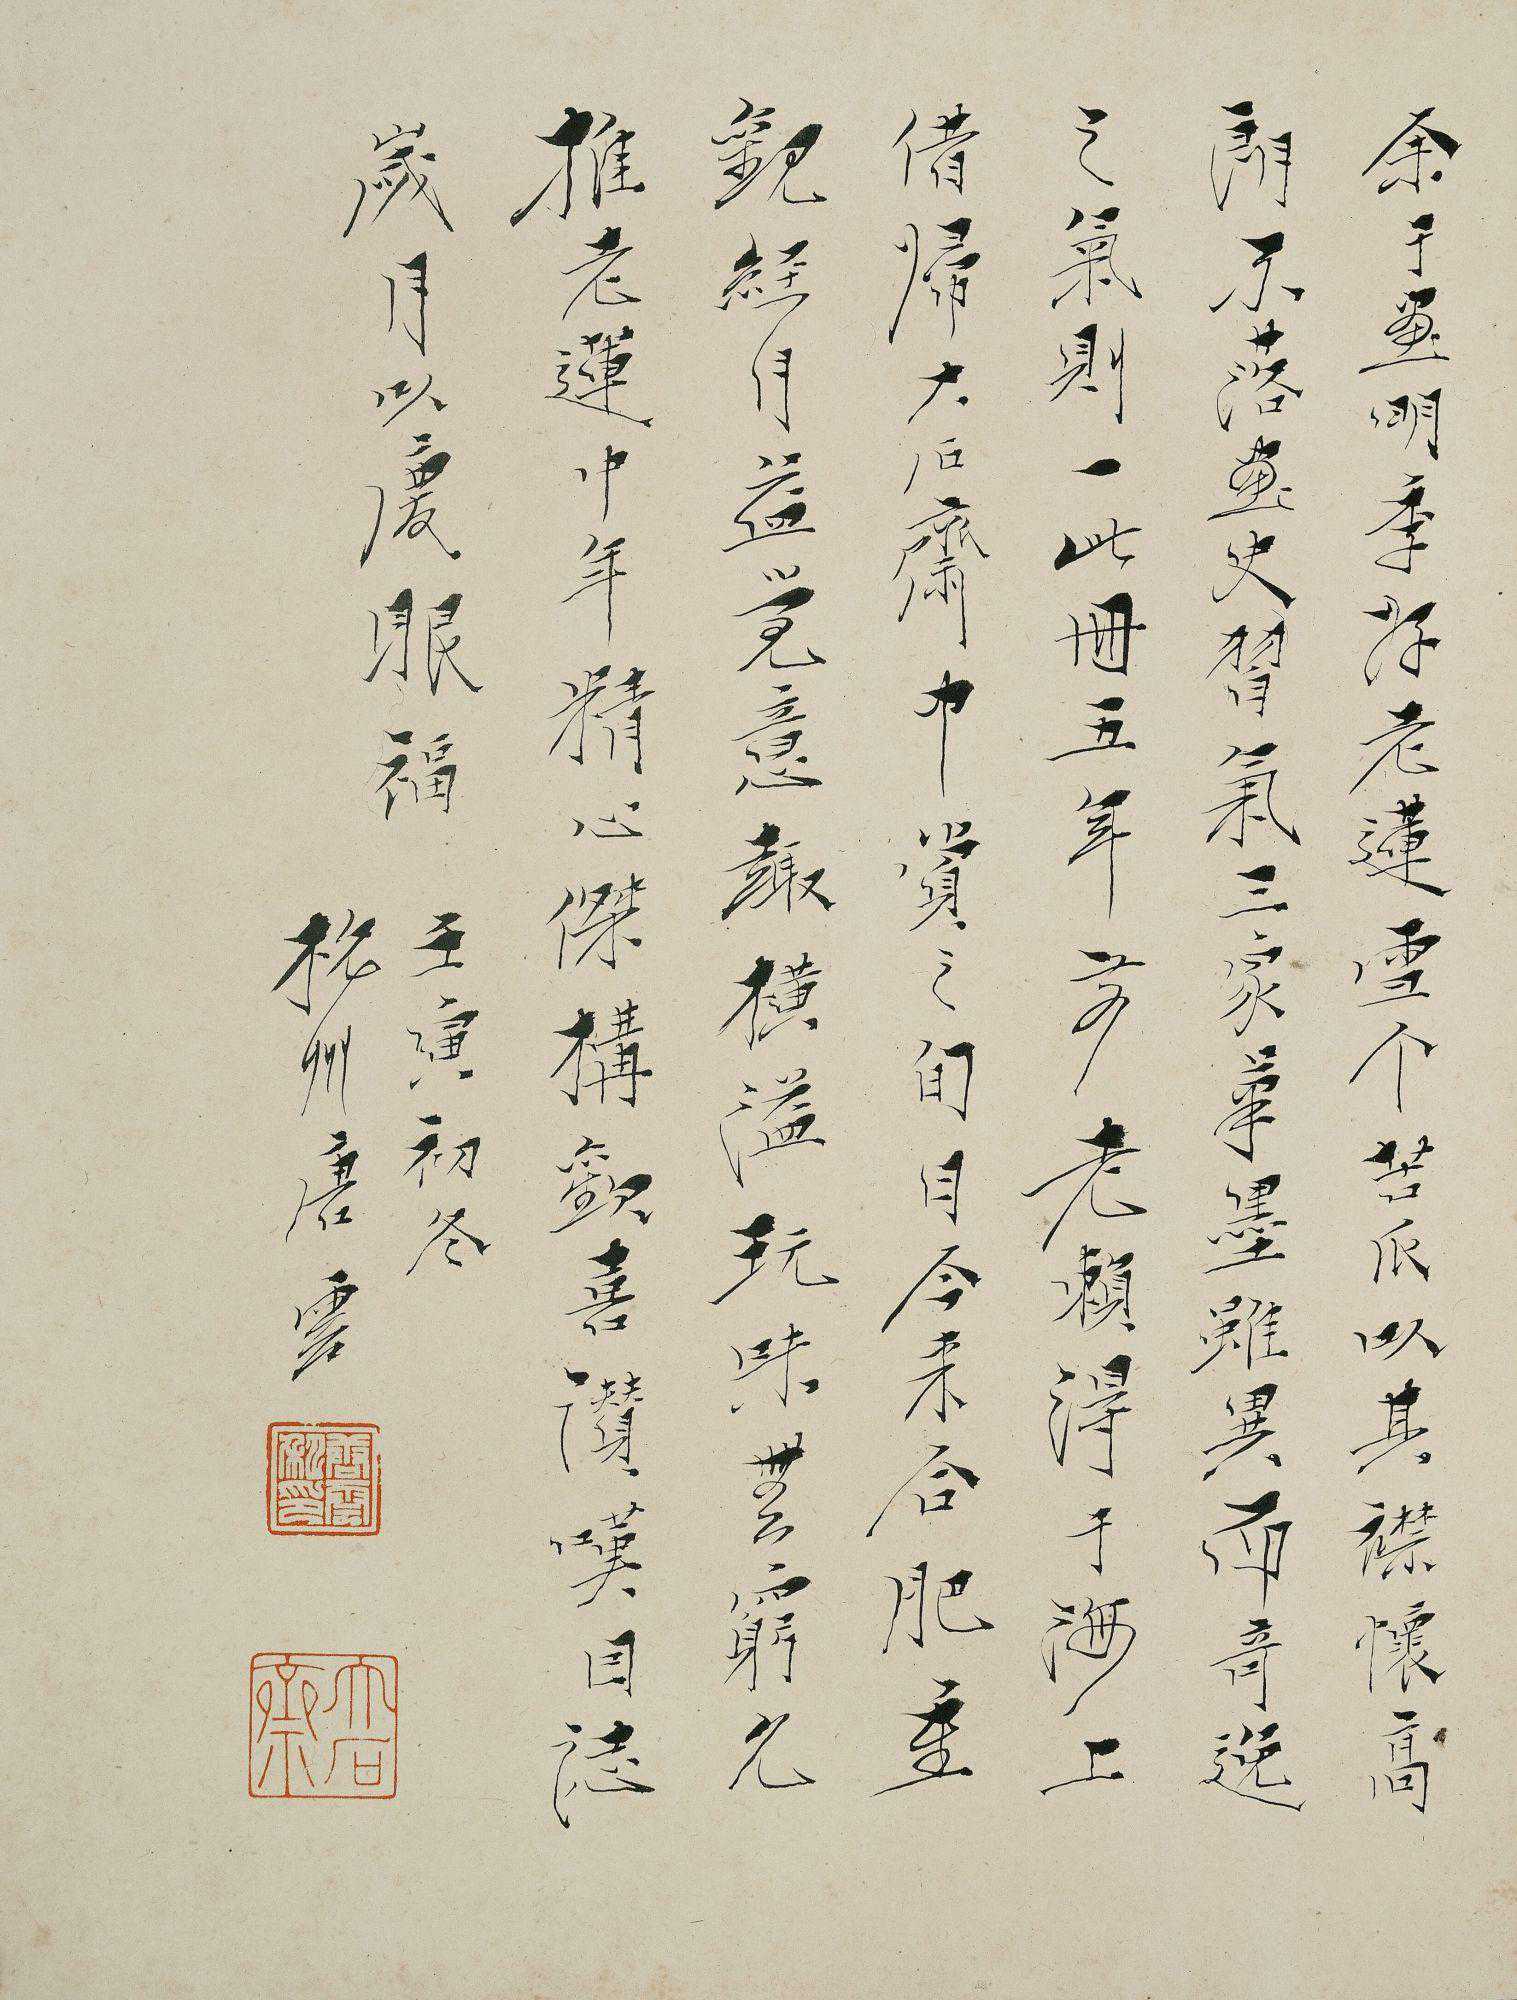 余于畫明季好老蓮雪个苦瓜以其襟懷高
朗不落畫史習氣三家筆墨雖異而奇逸
之氣則一此冊五年前老賴得于海上
借歸大石齋中賞之旬日今來合肥重
觀經月益覺意趣橫溢玩味無窮允
推老蓮中年精心傑構歡喜讚嘆因誌
歲月以慶眼福
壬寅初冬
杭州唐雲
唐雲私印
大石齋